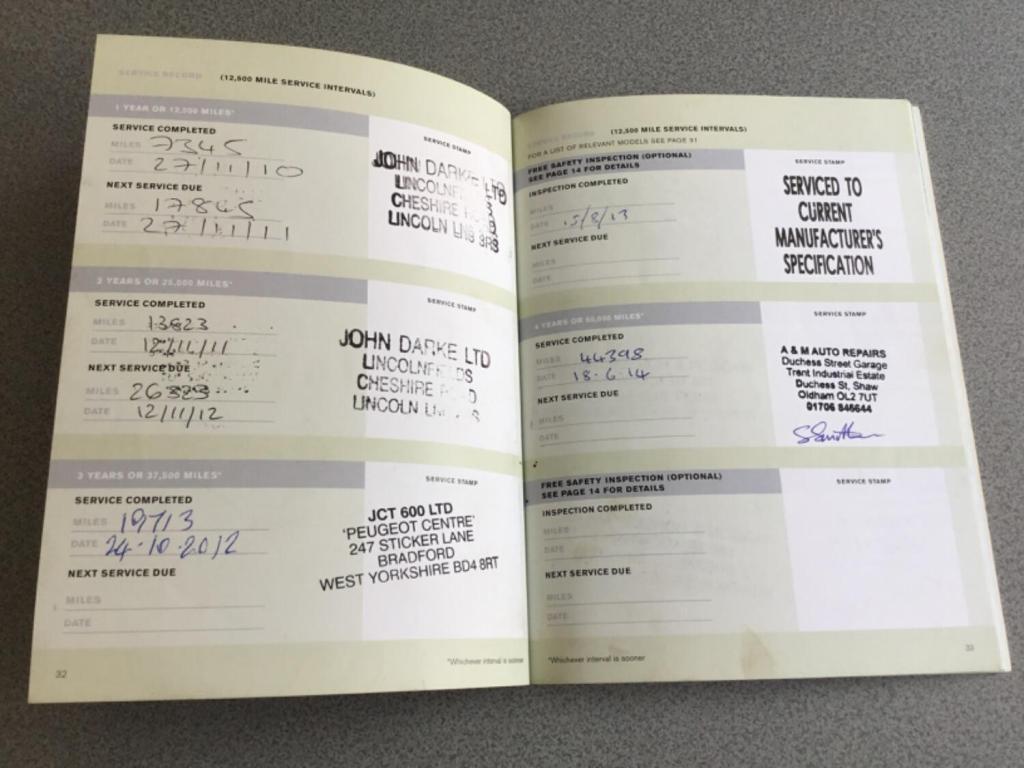 SERVICE RECORD (12,500 MILE SERVICE INTERVALS)
1 YEAR OR 12,500 MILES*
SERVICE COMPLETED
MILES 7345
DATE 27/11/10
NEXT SERVICE DUE
MILES 17845
DATE 27/11/11
SERVICE STAMP
JOHN DARKE LTD
CHESHIRE
LINCOLN LN6 3RS
2 YEARS OR 25,000 MILES*
SERVICE COMPLETED
MILES 13823
DATE /11
NEXT SERVICE DUE
MILES
DATE 12/11/12
SERVICE STAMP
JOHN DARKE LTD
LINCOLNFIELDS
CHESHIRE
LINCOLN
3 YEARS OR 37,500 MILES*
SERVICE COMPLETED
MILES 19713
DATE 24.10.2012
NEXT SERVICE DUE
MILES
DATE
SERVICE STAMP
JCT 600 LTD
'PEUGEOT CENTRE'
247 STICKER LANE
BRADFORD
WEST YORKSHIRE BD4 8RT
*Whichever interval is sooner
32
SERVICE RECORD (12,500 MILE SERVICE INTERVALS)
FOR A LIST OF RELEVANT MODELS SEE PAGE 91
FREE SAFETY INSPECTION (OPTIONAL)
SEE PAGE 14 FOR DETAILS
INSPECTION COMPLETED
MILES
DATE 15/8/13
NEXT SERVICE DUE
MILES
DATE
SERVICE STAMP
SERVICED TO
CURRENT
MANUFACTURER'S
SPECIFICATION
4 YEARS OR 50,000 MILES*
SERVICE COMPLETED
MILES 44398
DATE 18.6.14
NEXT SERVICE DUE
MILES
DATE
SERVICE STAMP
A & M AUTO REPAIRS
Duchess Street Garage
Trent Industrial Estate
Duchess St, Shaw
Oldham OL2 7UT
01706 846644
FREE SAFETY INSPECTION (OPTIONAL)
SEE PAGE 14 FOR DETAILS
INSPECTION COMPLETED
MILES
DATE
NEXT SERVICE DUE
MILES
DATE
SERVICE STAMP
*Whichever interval is sooner
33